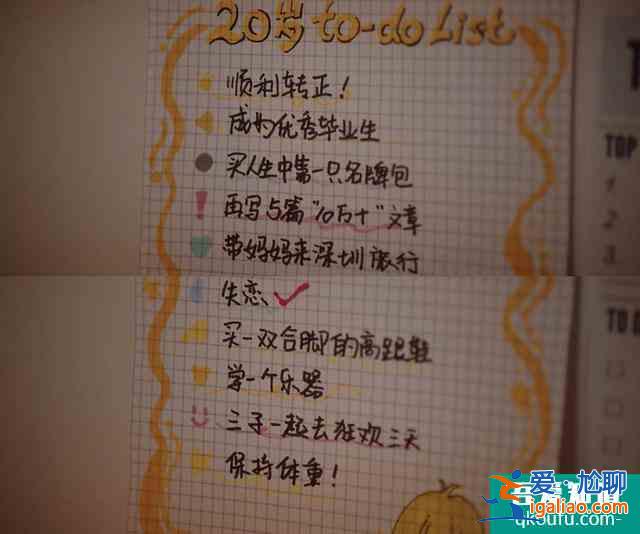 20岁 to-do List
顺利转正！
成为优秀毕业生
买人生中第一只名牌包
再写5篇"10万+"文章
带妈妈来深圳旅行
失恋
买一双合脚的高跟鞋
学一个乐器
三子一起去狂欢三天
保持体重！
TOP
1
2
3
TO D
爱尬聊
igaliao.com
qk5ufu.com